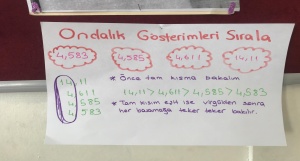 Ondalık Gösterimleri Sırala
4,583 4,585 4,611 14,11
14,11
4,611
4,585
4,583
* Önce tam kısma bakalım
14,11 > 4,611 > 4,585 > 4,583
* Tam kısım eşit ise virgülden sonra
her basamağa teker teker bakılır.